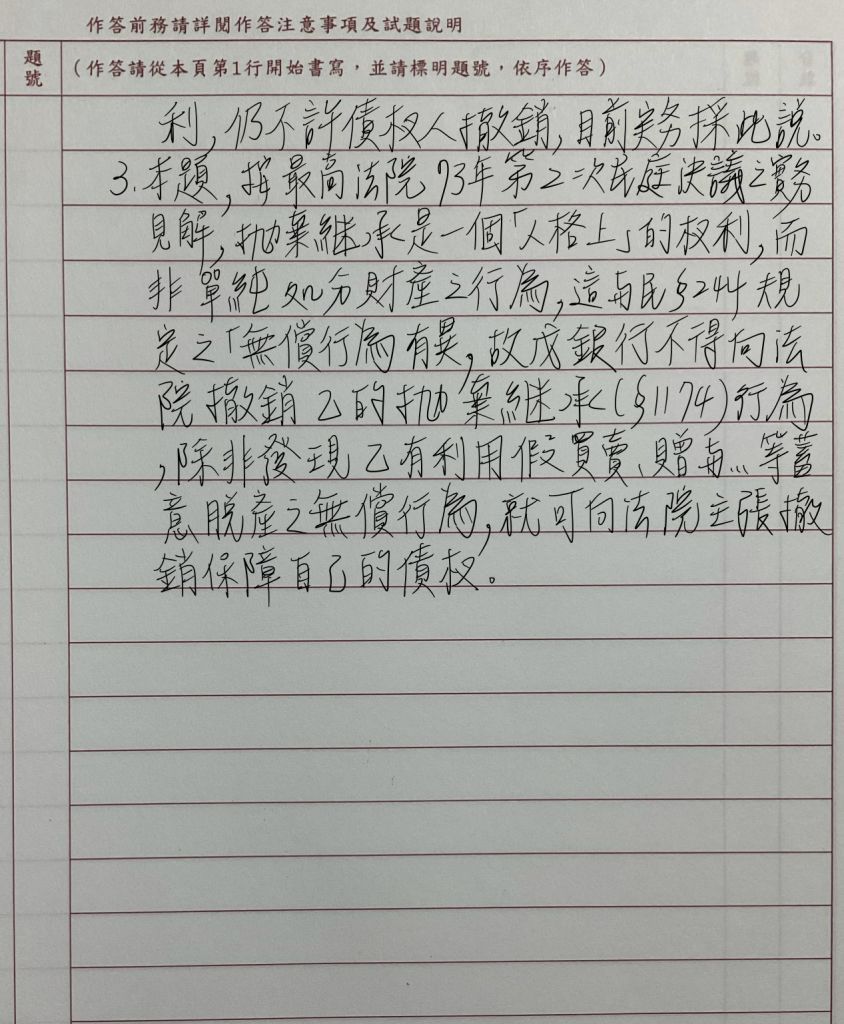 作答前務請詳閱作答注意事項及試題說明
題號
(作答請從本頁第1行開始書寫,並請標明題號,依序作答)
利,仍不許債权人撤銷,目前实務採此說。
3.本題,按最高法院73年第2次民庭決議之實務
見解,拋棄継承是一個「人格上」的权利,而
非單純処分財產之行為,這与民§244規
定之「無償行為有異,故戊銀行不得向法
院撤銷乙的拋棄継承(§1174)行為
,除非發現乙有利用假買賣、贈与...等蓄
意脫產之無償行為,就可向法院主張撤
銷保障自己的債权。